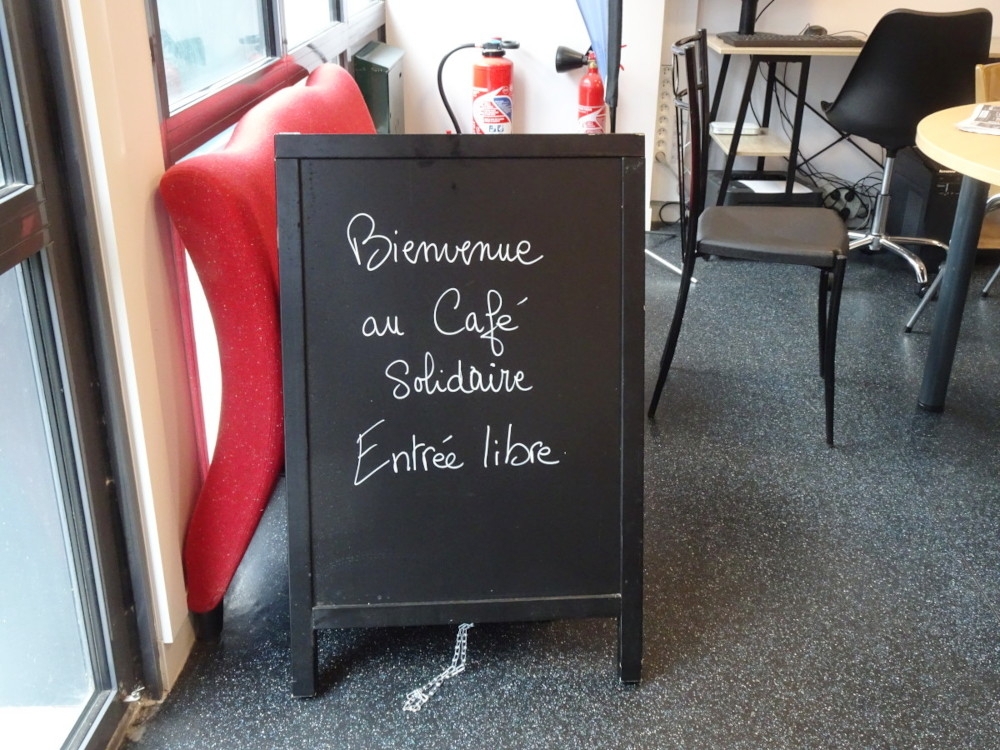 Bienvenue
au Café
Solidaire
Entrée libre.